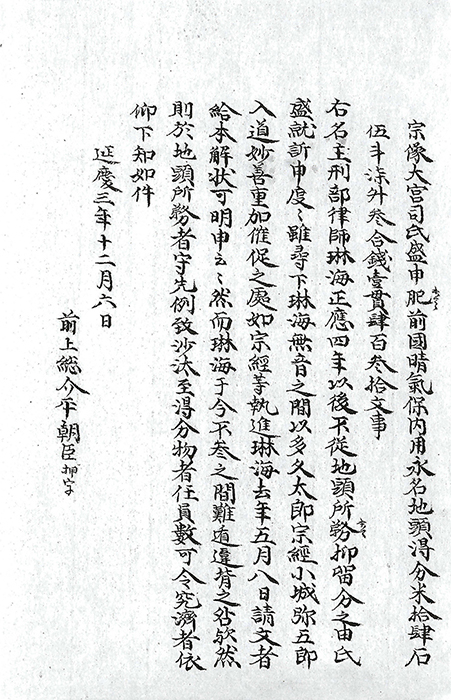 宗像大宮司氏盛申肥前國晴氣保内用永名地頭得分米拾肆石
伍斗柒升叄合錢壹貫肆百叄拾文事
右名主刑部律師琳海正應四年以後不從地頭所務抑留分之由氏
盛就訴申度〻雖尋下琳海無音之間以多久太郎宗經小城弥五郎
入道妙善重加催促之處如宗經等執進琳海去年五月八日請文者
給本解状可明申云〻然而琳海于今不叄之間難遁違背之咎歟然
則於地頭所務者守先例致沙汰至得分物者任員數可令究濟者依
仰下知如件
延慶三年十二月六日
前上總介平朝臣 押字